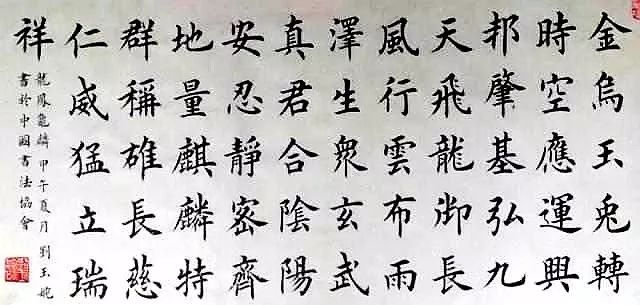 金烏玉兔轉
時空應運興
邦肇基弘九
天飛龍御長
風行雲布雨
澤生衆玄武
真君合陰陽
安忍靜密齊
地量麒麟特
群稱雄長慈
仁威猛立瑞
祥
龍鳳龜麟 甲午夏月 劉玉
書於中國書法協會